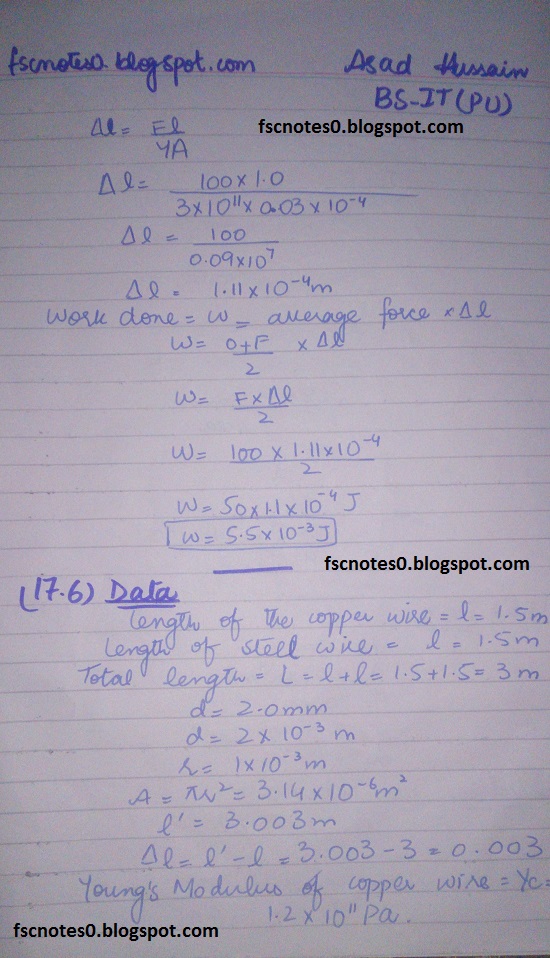 fscnotes0.blogspot.com Asad Hussain
BS-IT(PU)
fscnotes0.blogspot.com
Δl = Fl / YA
Δl = 100 × 1.0 / 3×10¹¹ × 0.03 × 10⁻⁴
Δl = 100 / 0.09×10⁷
Δl = 1.11×10⁻⁴m
Work done = W = average force × Δl
W = 0+F / 2 × Δl
W = F×Δl / 2
W = 100 × 1.11×10⁻⁴ / 2
W = 50×1.1×10⁻⁴ J
W = 5.5×10⁻³ J
fscnotes0.blogspot.com
(17.6) Data
length of the copper wire = l = 1.5m
Length of steel wire = l = 1.5m
Total length = L = l+l = 1.5+1.5 = 3 m
d = 2.0mm
d = 2×10⁻³ m
r = 1×10⁻³m
A = πr² = 3.14×10⁻⁶m²
l' = 3.003m
Δl = l'-l = 3.003-3 = 0.003
Young's Modulus of copper wire = Yc =
1.2×10¹¹ Pa.
fscnotes0.blogspot.com